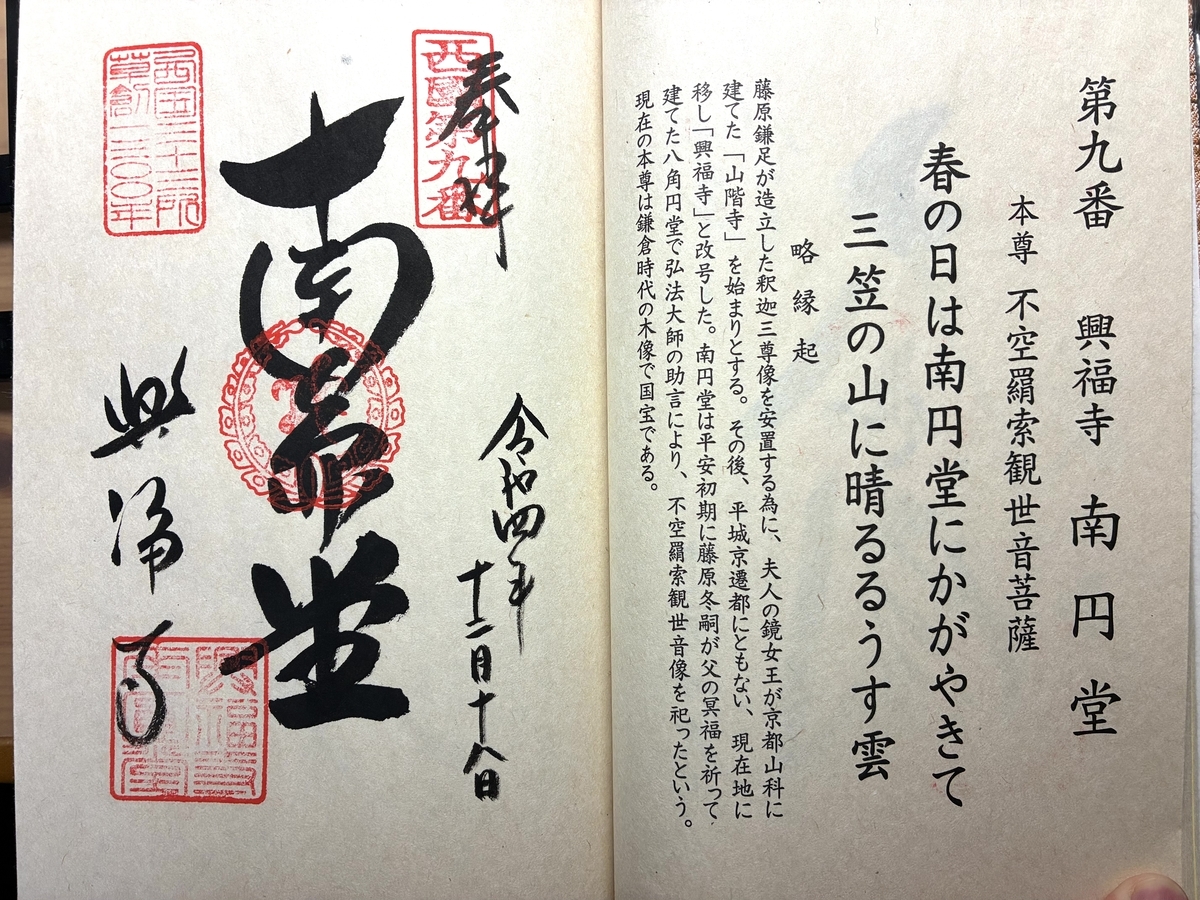 第九番　興福寺　南円堂
本尊　不空羂索観世音菩薩
春の日は南円堂にかがやきて
三笠の山に晴るるうす雲
略縁起
藤原鎌足が造立した釈迦三尊像を安置する為に、夫人の鏡女王が京都山科に
建てた「山階寺」を始まりとする。その後、平城京遷都にともない、現在地に
移し「興福寺」と改号した。南円堂は平安初期に藤原冬嗣が父の冥福を祈って
建てた八角円堂で弘法大師の助言により、不空羂索観世音像を祀ったという。
現在の本尊は鎌倉時代の木像で国宝である。
奉拝
西國第九番
令和四年
十二月十八日
南円堂
興福寺
西国三十三所
草創一三〇〇年
興福寺
南圓堂